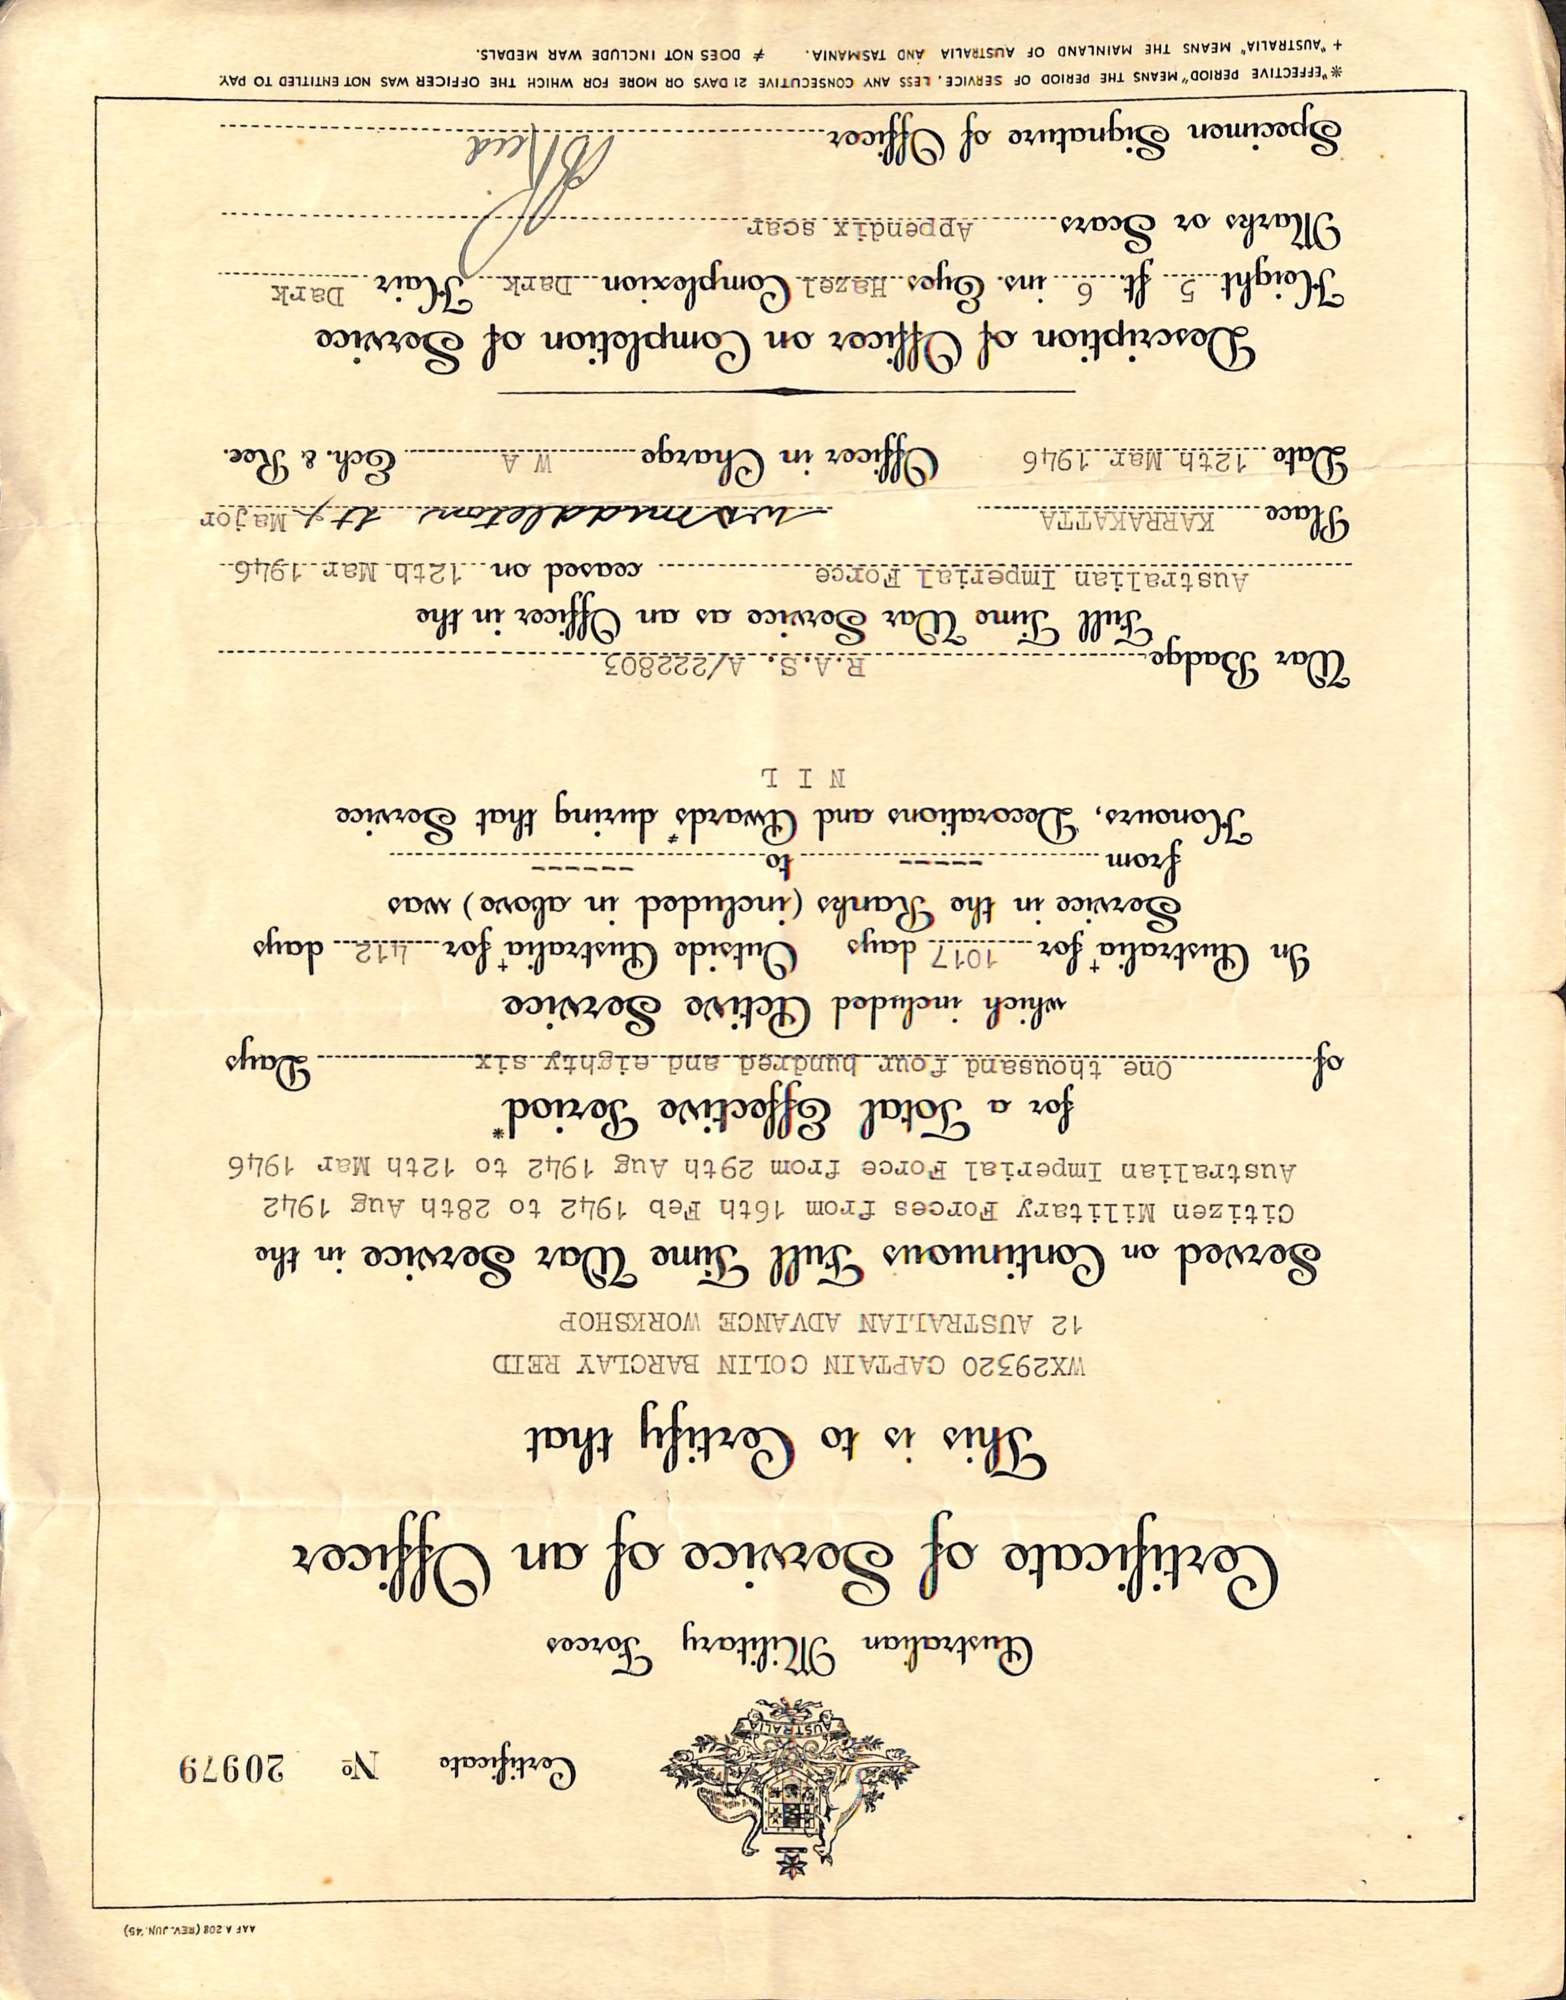 AAF A 208 (REV. JUN. '45)
Certificate No 20979
AUSTRALIA
Australian Military Forces
Certificate of Service of an Officer
This is to Certify that
WX29320 CAPTAIN COLIN BARCLAY REID
12 AUSTRALIAN ADVANCE WORKSHOP
Served on Continuous Full Time War Service in the
Citizen Military Forces from 16th Feb 1942 to 28th Aug 1942
Australian Imperial Force from 29th Aug 1942 to 12th Mar 1946
for a Total Effective Period*
of One thousand four hundred and eighty six Days
which included Active Service
In Australia+ for 1017 days Outside Australia+ for 412 days
Service in the Ranks (included in above) was
from ----- to ------
Honours, Decorations and Awards≠ during that Service
N I L
War Badge R.A.S. A/222803
Full Time War Service as an Officer in the
Australian Imperial Force ceased on 12th Mar 1946
Place KARRAKATTA Middleton Major
Date 12th Mar 1946 Officer in Charge W A Ech. & Rec.
Description of Officer on Completion of Service
Height 5 ft. 6 ins. Eyes Hazel Complexion Dark Hair Dark
Marks or Scars Appendix scar
Specimen Signature of Officer CBReid
*"EFFECTIVE PERIOD" MEANS THE PERIOD OF SERVICE, LESS ANY CONSECUTIVE 21 DAYS OR MORE FOR WHICH THE OFFICER WAS NOT ENTITLED TO PAY.
+ "AUSTRALIA" MEANS THE MAINLAND OF AUSTRALIA AND TASMANIA. ≠ DOES NOT INCLUDE WAR MEDALS.